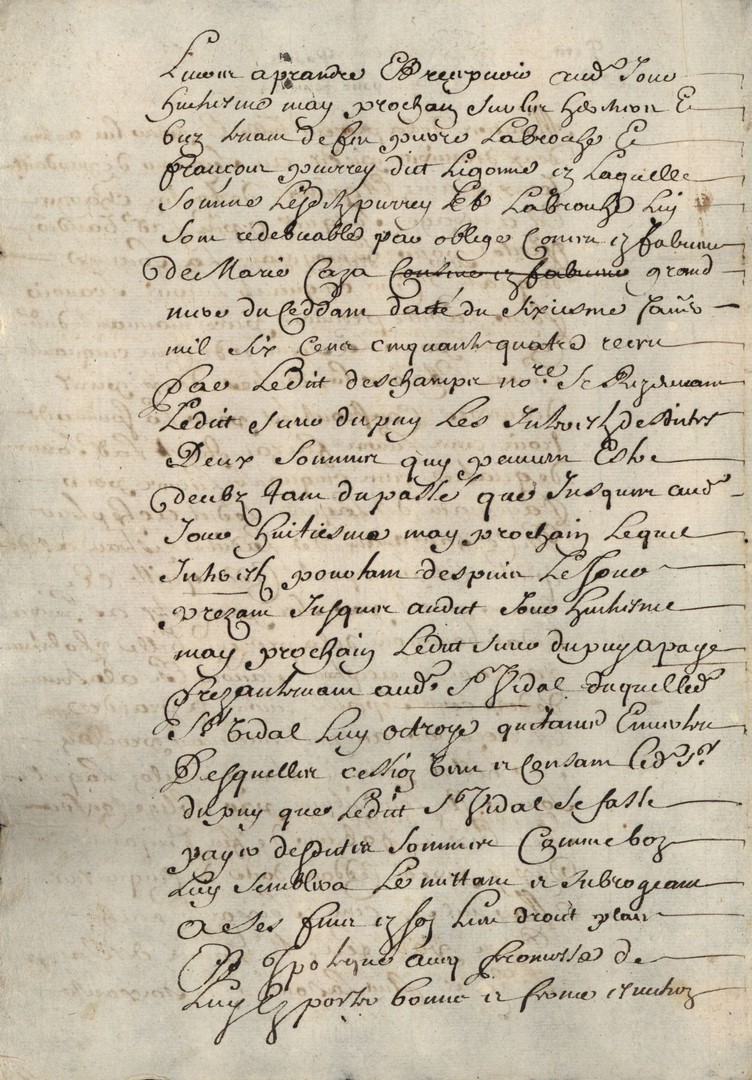 Livres a prandre Et recepvoir aud. Jour
huitiesme may prochain sur les heritiers Et
bien tenans de feu pierre Labrouhe Et
francois purrey dict Ligonne et Laquelle
Somme Lesditz purrey Et Labrouhe Luy
Sont redebvables par oblige Consen en fabeur
de Marie Caza Consen en fabeur grand
mere du Ceddant datté du Sixiesme Janv.
mil Six Cens cinquante quatre receu
Par Ledit deschamps nore. Et Prezentement
Ledit Sieur dupuy Les Interestz desdites
Deux Sommes quy peuvent Estre
deubz tant du passé que Jusques aud.
Jour huitiesme may prochain Lequel
Interestz pourtant despuis Le Jour
prezant Jusques audit Jour huitiesme
may prochain Ledit Sieur dupuy a paye
Prezantemant aud. Sr. Vidal duquel led.
Sr. Vidal Luy octroye quitance Et moyen
Desquelles cession veut et Consant led. Sr.
dupuy que Ledit Sr. Vidal Se fasse
payer desdites Sommes Comme bon
Luy Semblera Le mettant et Subrogeant
a Ses fins en son Lieu droit place
Et Ipoteque aveq promesse de
Luy Et porter bonne et ferme eviction